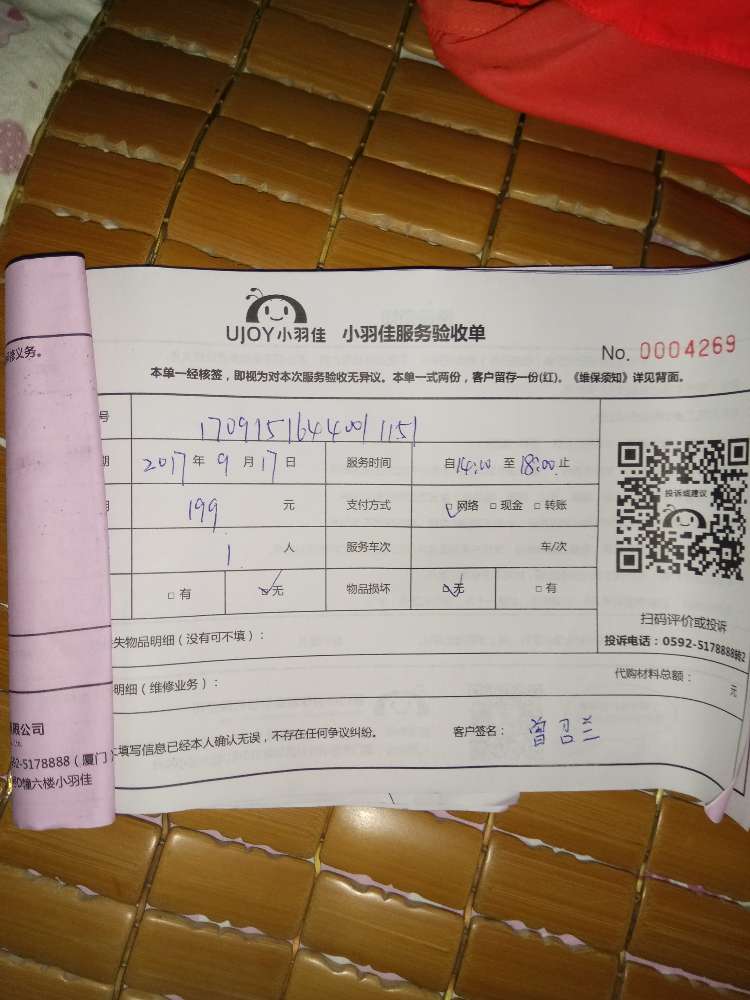 UJOY小羽佳 小羽佳服务验收单
No. 0004269
本单一经核签，即视为对本次服务验收无异议。本单一式两份，客户留存一份(红)。《维保须知》详见背面。
号 17091516440011151
期 2017 年 9 月 17 日 服务时间 自14:00 至 18:00止
199 元 支付方式 □网络 □现金 □转账
1 人 服务车次 车/次
□有 □无 物品损坏 □无 □有
投诉或建议
扫码评价或投诉
投诉电话：0592-5178888转2
失物品明细（没有可不填）：
明细（维修业务）： 代购材料总额： 元
填写信息已经本人确认无误，不存在任何争议纠纷。 客户签名：曾召兰
修义务。
限公司
92-5178888（厦门）
幢六楼小羽佳